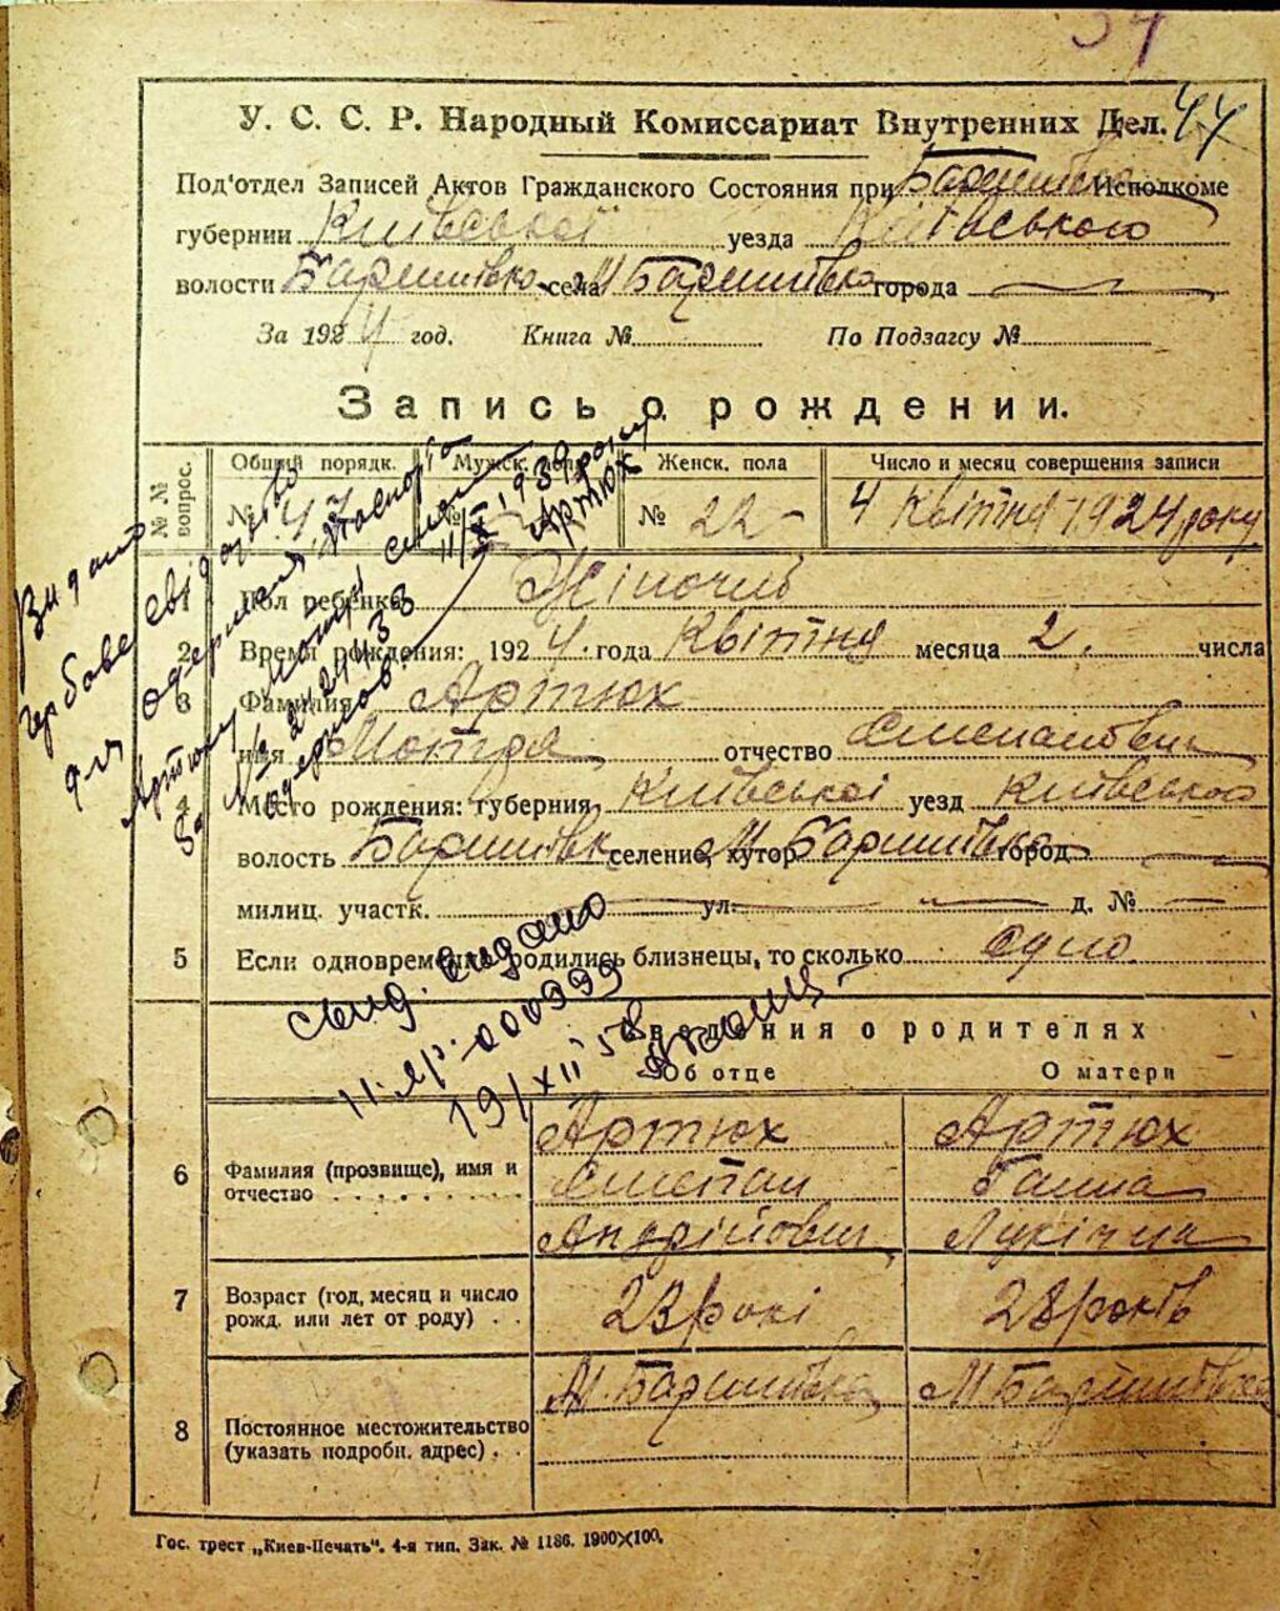 44
У. С. С. Р. Народный Комиссариат Внутренних Дел.
Под'отдел Записей Актов Гражданского Состояния при Исполкоме
губернии Київської уезда Київського
волости Баришівка села М Баришівка города
За 1924 год. Книга № По Подзагсу №
Запись о рождении.
№ № вопрос.
Общий порядк. Мужск. пола Женск. пола Число и месяц совершения записи
№ 47 № № 22 4 Квітня 1924 року
1 Пол ребенка Жіночий
2 Время рождения: 1924. года Квітня месяца 2. числа
3 Фамилия Артюх
имя Мотря отчество Степановна
4 Место рождения: губерния, Київської уезд Київського
волость Баришівк селение, хутор М Баришівка город
милиц. участк. ул. д. №
5 Если одновременно родились близнецы, то сколько одно.
Сведения о родителях
Об отце О матери
Артюх Артюх
6 Фамилия (прозвище), имя и отчество Степан Ганна
Андрійович Лукічна
7 Возраст (год, месяц и число рожд. или лет от роду) 23 рокі 28 років
М. Баришівка М Баришівка
8 Постоянное местожительство (указать подробн. адрес)
Гос. трест „Киев-Печать". 4-я тип. Зак. № 1186. 1900×100.
Видано
гербове свідоцтво
для одержання паспорта
Артюху Мотрі
За № 2124433
11/X 1939 року
Артюх
свид. выдано
11. яр. 000999
19/XII 58